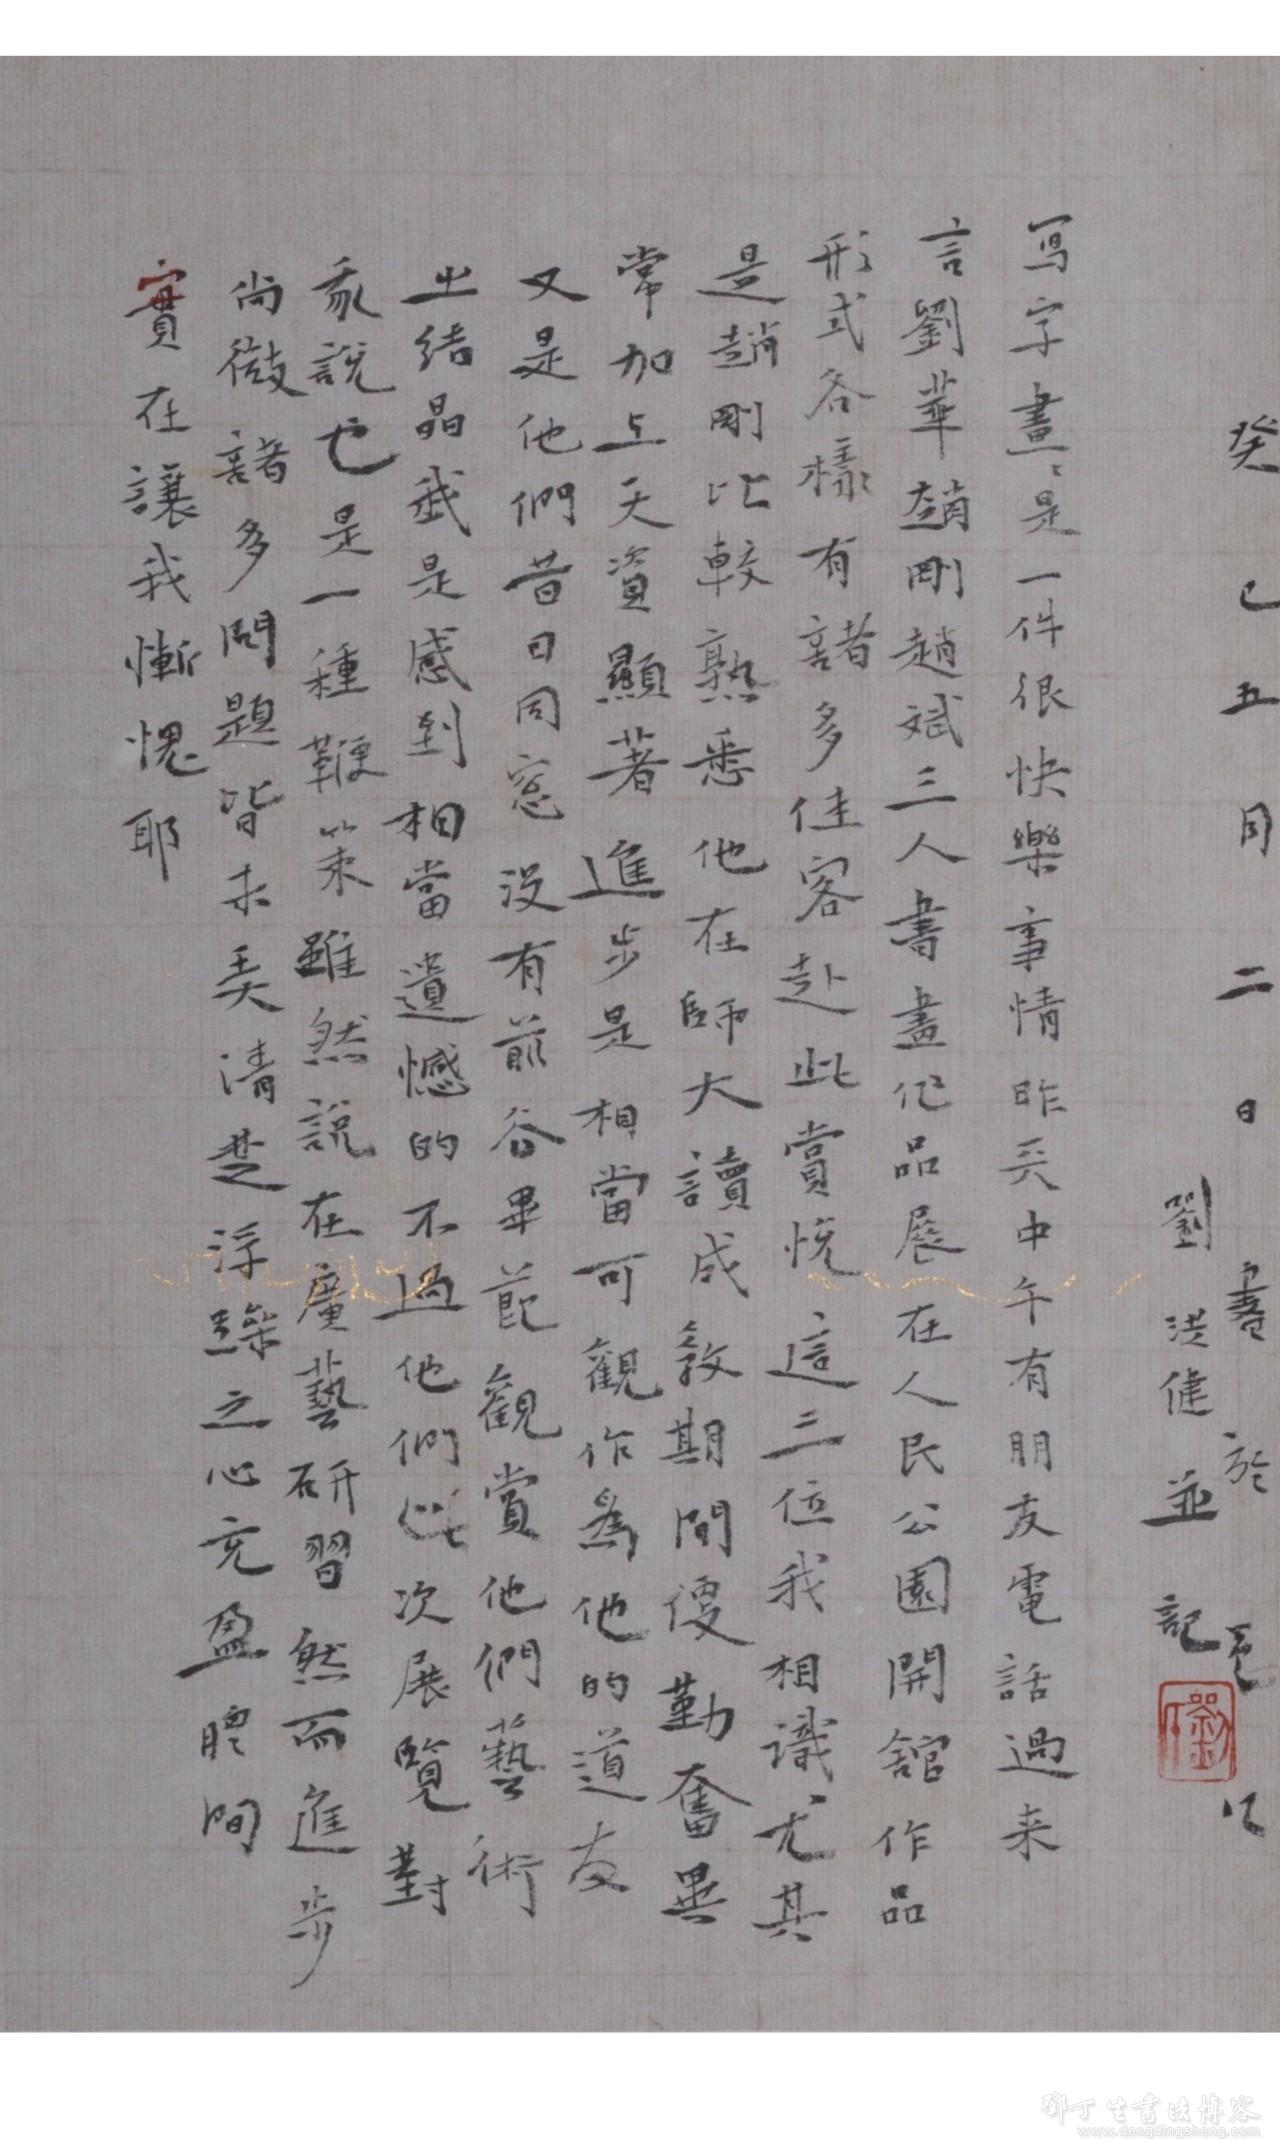 癸巳五月二日書於
劉洪健並記
寫字畫畫是一件很快樂事情昨天中午有朋友電話過来
言劉華趙剛趙斌三人書畫作品展在人民公園開舘作品
形式各樣有諸多佳客赴此賞悅這三位我相識尤其
是趙剛比較熟悉他在師大讀成教期間便勤奮異
常加上天資顯著進步是相當可觀作為他的道友
又是他們昔日同窓没有前谷畢節觀賞他們藝術
之結晶我是感到相當遺憾的不過他們此次展覽對
我說也是一種鞭策雖然說在廣藝研習然而進步
尚微諸多問題皆未弄清楚浮躁之心充盈腮間
實在讓我慚愧耶
鄧丁生書法博客
www.dengdingsheng.com